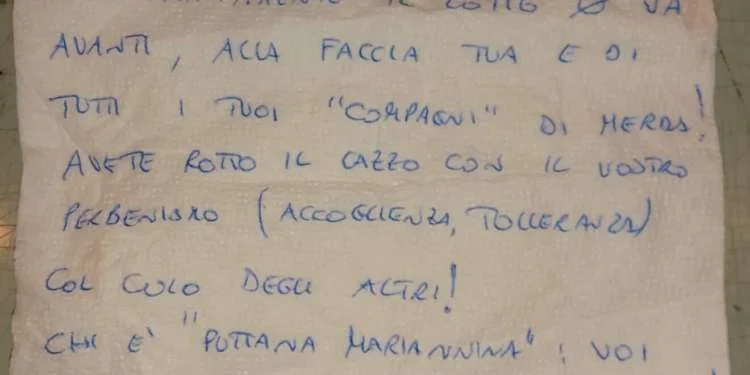 IL COTTO Ø VA
AVANTI, ALLA FACCIA TUA E DI
TUTTI I TUOI "COMPAGNI" DI MERDA!
AVETE ROTTO IL CAZZO CON IL VOSTRO
PERBENISMO (ACCOGLIENZA, TOLLERANZA)
COL CULO DEGLI ALTRI!
CHI E' "PUTTANA MARIANNINA": VOI